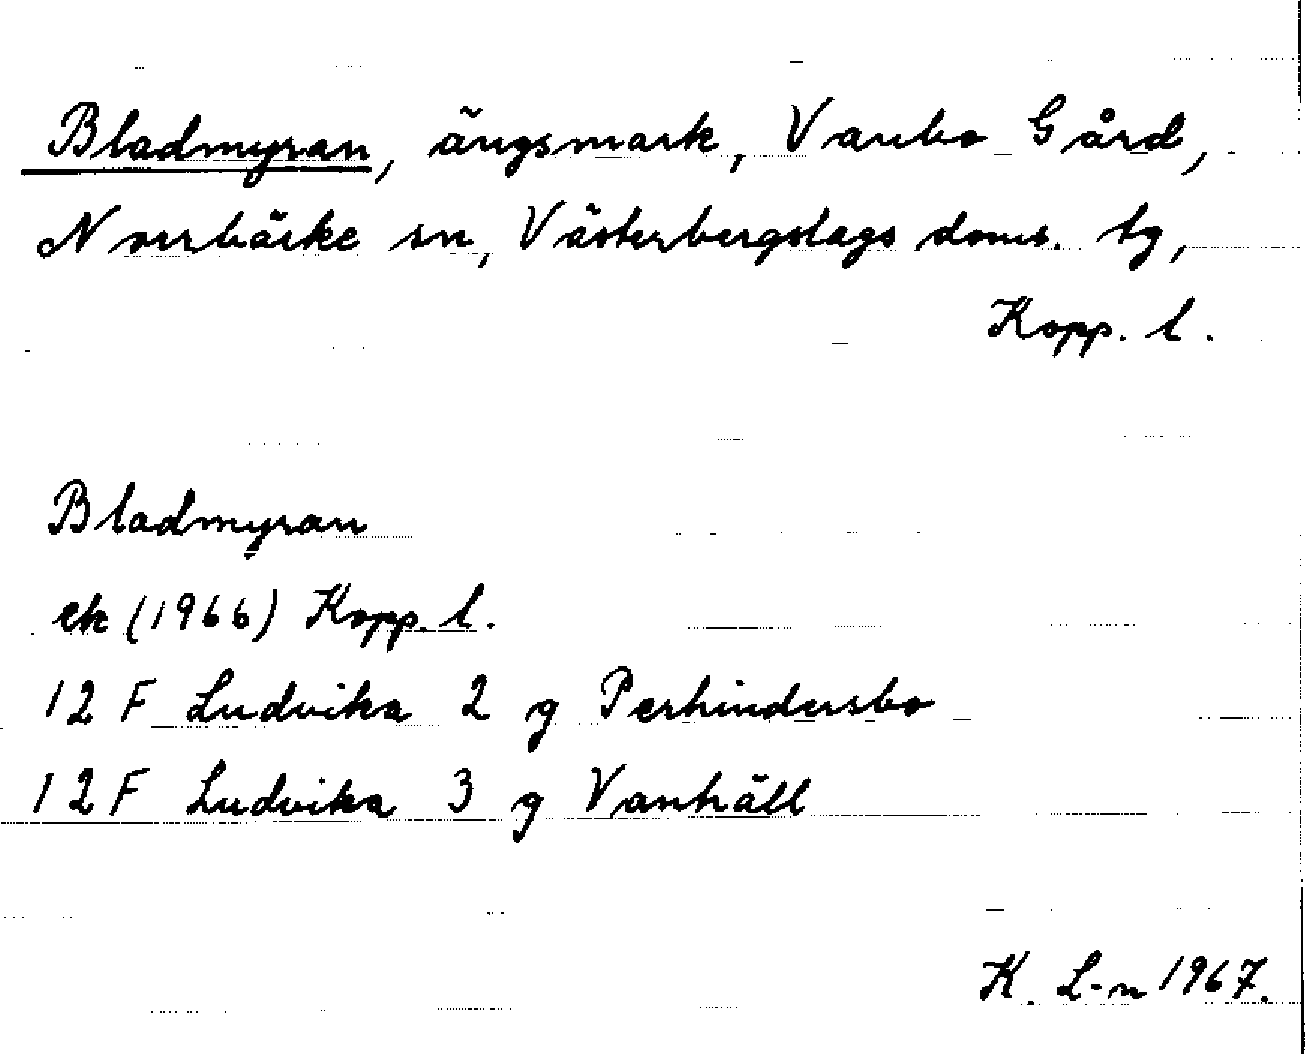 Bladmyran, ängsmark, Vanbo Gård,
Norrbärke sn, Västerbergslags doms. tg,
Kopp. l.
Bladmyran
ek (1966) Kopp. l.
12 F Ludvika 2 g Perhindersbo
12 F Ludvika 3 g Vanhäll
K. L-n 1967.